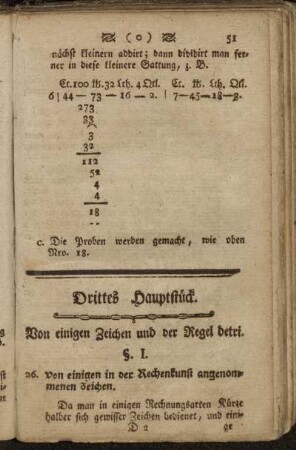 ( o ) 51
nächst kleinern addirt; dann dividirt man fer-
ner in diese kleinere Gattung, z. B.
Ct. 100 tt. 32 Lth. 4 Qtl. Ct. tt. Lth. Qtl.
6 | 44 — 73 — 16 — 2. | 7 — 45 — 18 — 3.
273
33
3
32
112
52
4
4
18
c. Die Proben werden gemacht, wie oben
Nro. 18.
Drittes Hauptstück.
Von einigen Zeichen und der Regel detri.
§. I.
26. Von einigen in der Rechenkunst angenom-
menen Zeichen.
Da man in einigen Rechnungsarten Kürze
halber sich gewisser Zeichen bedienet, und eini-
D 2 ge